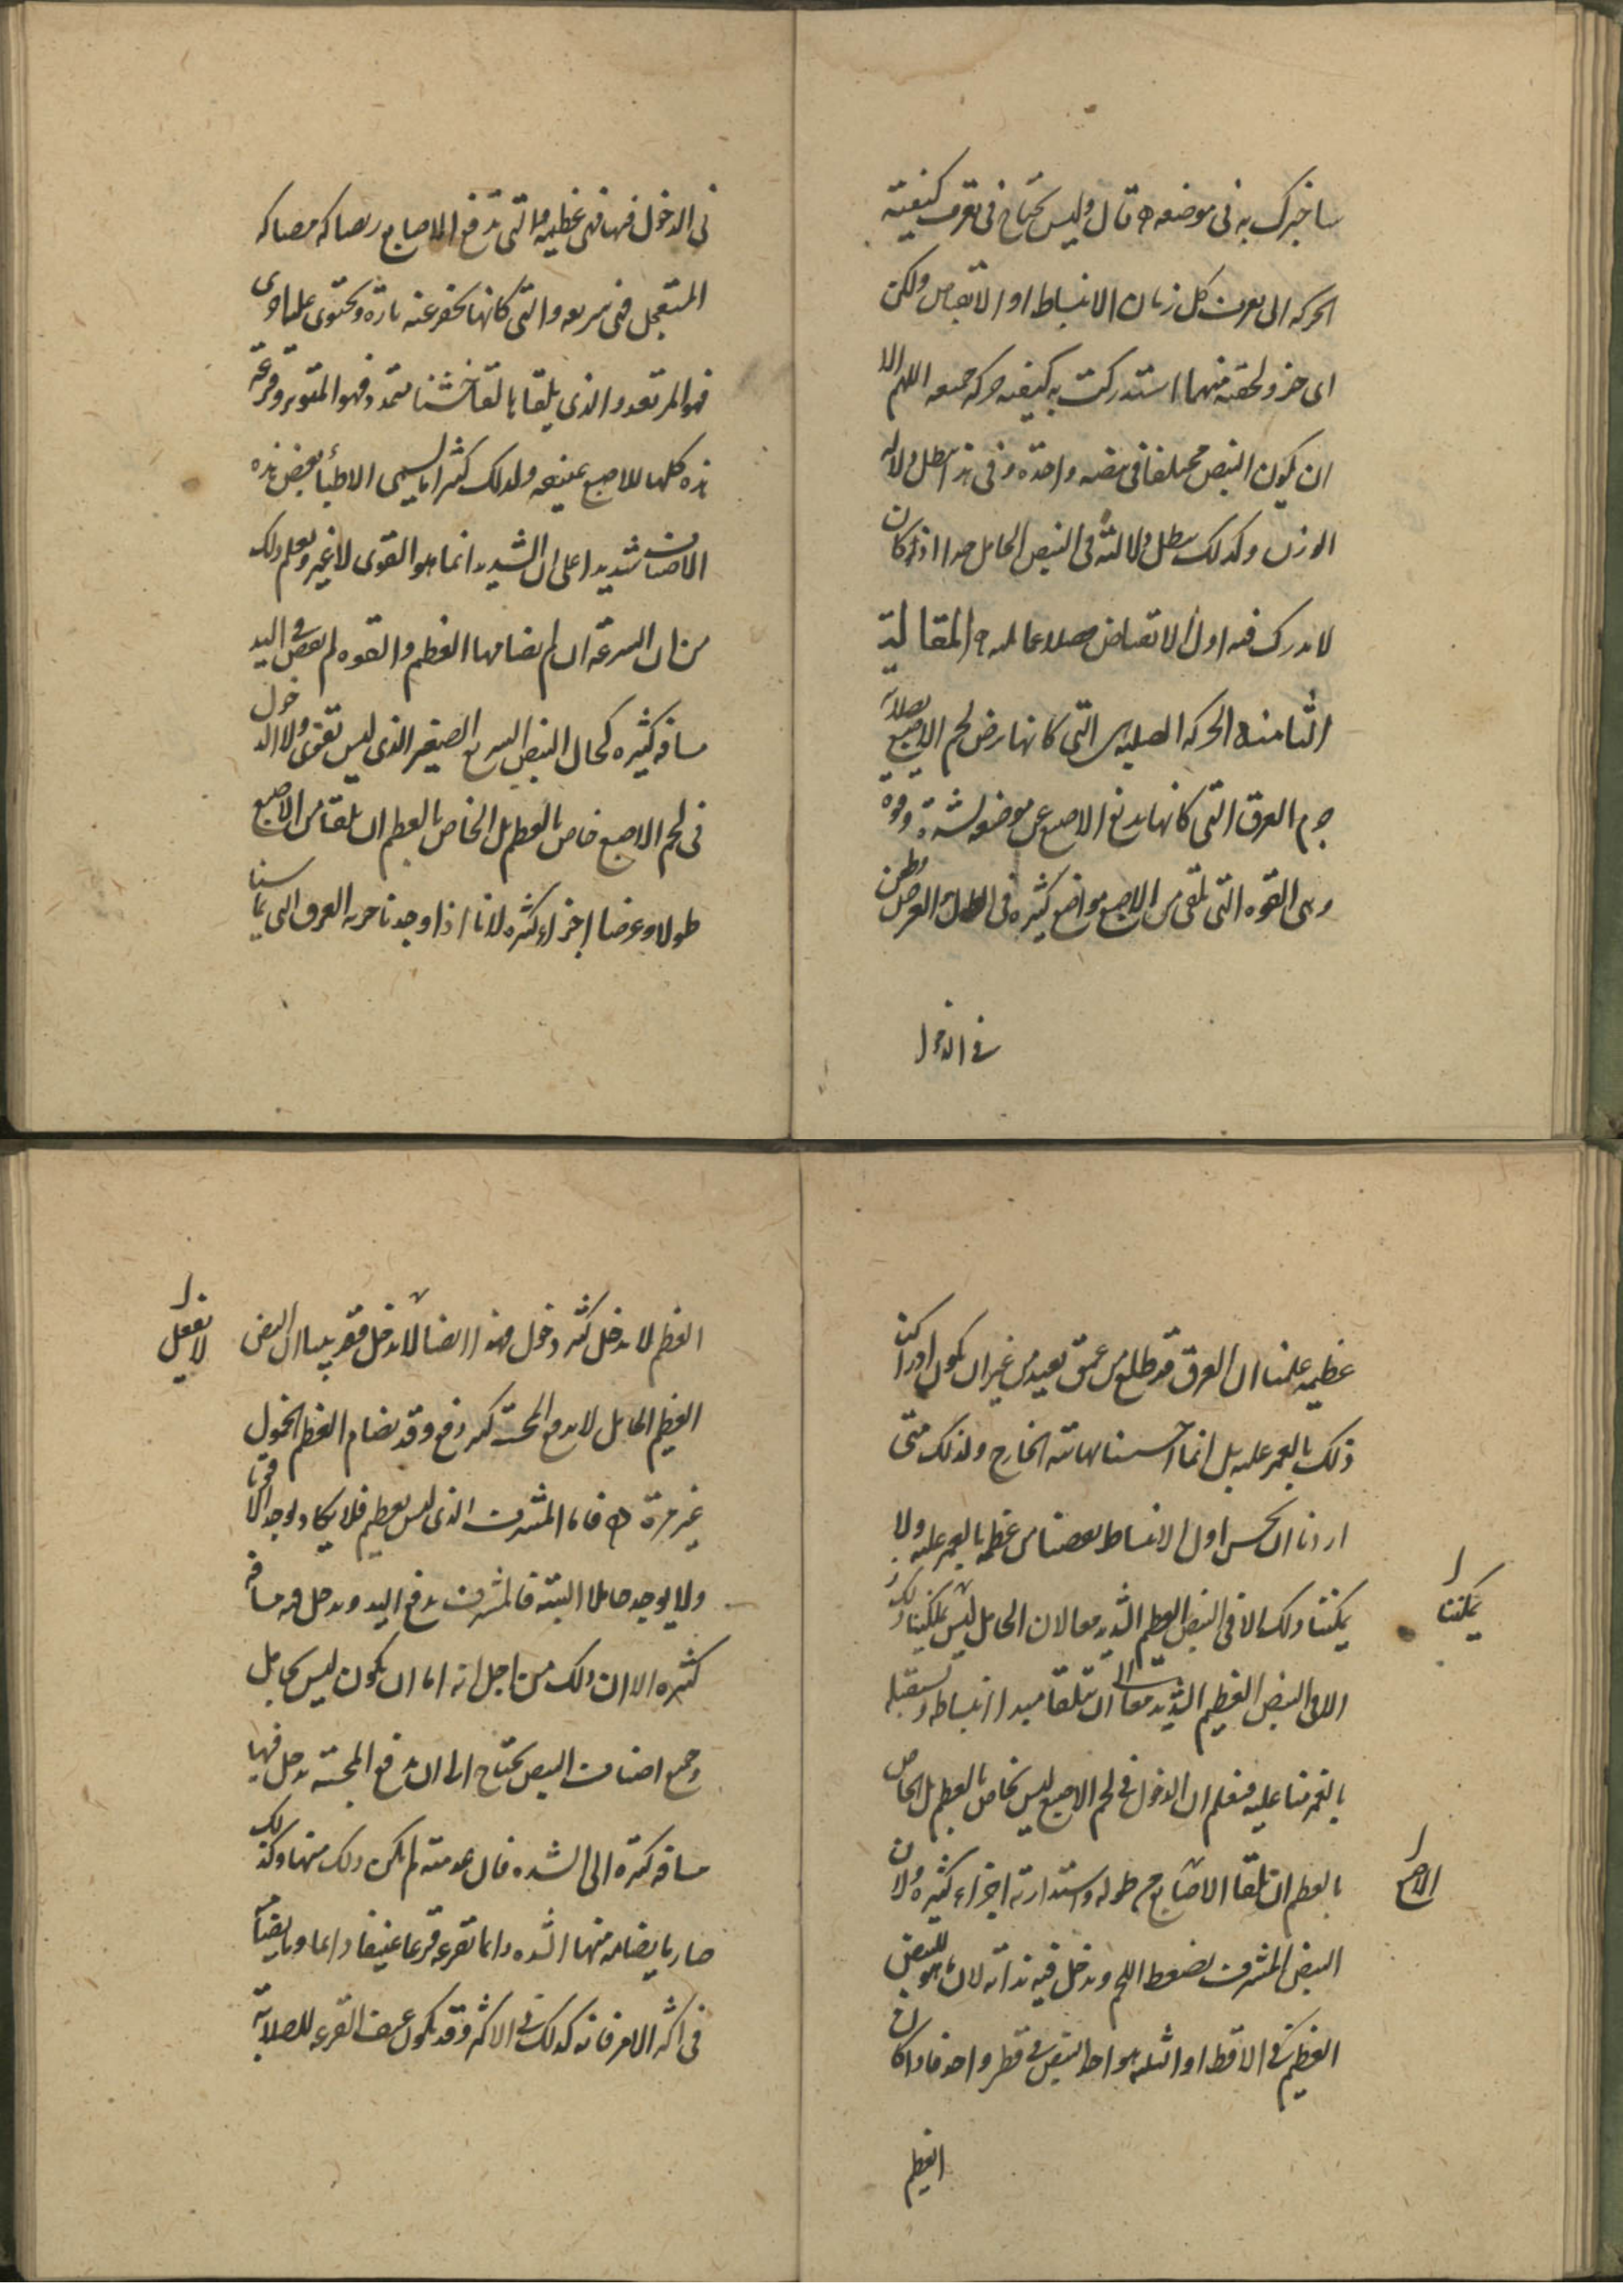 ساخبرك به في موضعه ه قال وليس تحتاج في تعرف كيفية
الحركه الى تعرف كل زمان الانبساط او الانقباض ولكن
اى جزو لحقته منهما استدركت به كيفيه حركه جميعه اللهم الا
ان يكون النبض مختلفا في نبضه واحده وفي هذا يبطل دلاله
الوزن وكذلك يبطل دلالته في النبض الحامل جدا اذ كان
لا يدرك فيه اول الانقباض فضلا عما يليه ه المقالة
الثامنه الحركه الصلبه التي كانها ترض لحم الاصبع بصلابه
جرم العرق التي كانها يدفع الاصبع عن موضعه لشدة وقوة
وهي القوه التي تلقى من الاصبع مواضع كثيره في الطول والعرض
في الدخول
في الدخول فهي عظيمه والتي تدفع الاصابع
المستعجل فهي سريعه والتي كانها تحفر عنه تارة وتحتوى عليها اخرى
فهو المرتعد والذى يلقا بالقا خشنا متمددا فهو المتوتر وقرعة
هذه كلها للاصبع عنيفه ولذلك كثيرا ما يسمى الاطبأ بعض هذه
الاصناف شديدا على ان الشديد انما هو القوى لا غير وتعلم ذلك
من ان السرعة ان لم يضامها العظم والقوه لم تغص في اليد
مسافه كثيره كحال النبض السريع الصغير الذى ليس بقوى ولا الدخول
في لحم الاصبع خاص بالعظم بل الخاص بالعظم ان يلقا من الاصبع
طولا وعرضا اجزاء كثيره لانا اذا وجدنا حركه العرق التي تماسنا
عظيمه علمنا ان العرق قد طلع من عمق بعيد من غير ان يكون ادركنا
ذلك بالغمز عليه بل انما احسسنا نهايته الخارج ولذلك متى
اردنا ان نحس اول الانبساط نقصنا من عظمه بالغمز عليه ولا
يمكننا ذلك الا في النبض العظيم الشديد معا لان الحامل ليس يمكننا ذلك
يمكننا
الا في النبض العظيم الشديد معا ان نتلقا مبدا انبساطه ونستقبله
بالغمز منا عليه فنعلم ان الدخول في لحم الاصبع ليس بخاص بالعظم بل الخاص
بالعظم ان يلقا الاصابع من طوله واستدارته اجزاء كثيره ولان
النبض المشرف يضغط اللحم ويدخل فيه بذاته لان ما هو للنبض
العظيم في الاقطار الثلثه هو لهذا النبض في قطر واحد فاذا كان
العظيم
العظم لا يدخل كثير دخول فهذا ايضا لا يدخل فقد بينا ان النبض
العظيم الحامل لا يدفع المجسة كثير دفع وقد يضام العظم الخمول
غير مرة ه فاما المشرف الذى ليس بعظيم فلا يكاد يوجد الا قويا
ولا يوجد حاملا البتة فالمشرف يدفع اليد ويدخل فيه مسافه
كثيره الا ان ذلك من اجل انه اما ان يكون ليس بحامل
وجميع اصناف النبض يحتاج الى ان يدفع المجسة ويدخل فيها
مسافه كثيره الى الشده فان عدمته لم يكن ذلك منها وكذلك
صار ما يضامه منها الشده دايما تقرعه قرعا عنيفا دايما وما يضامه
في اكثر الامر فانه كذلك في الاكثر وقد يكون عنيف القرعه للصلابه